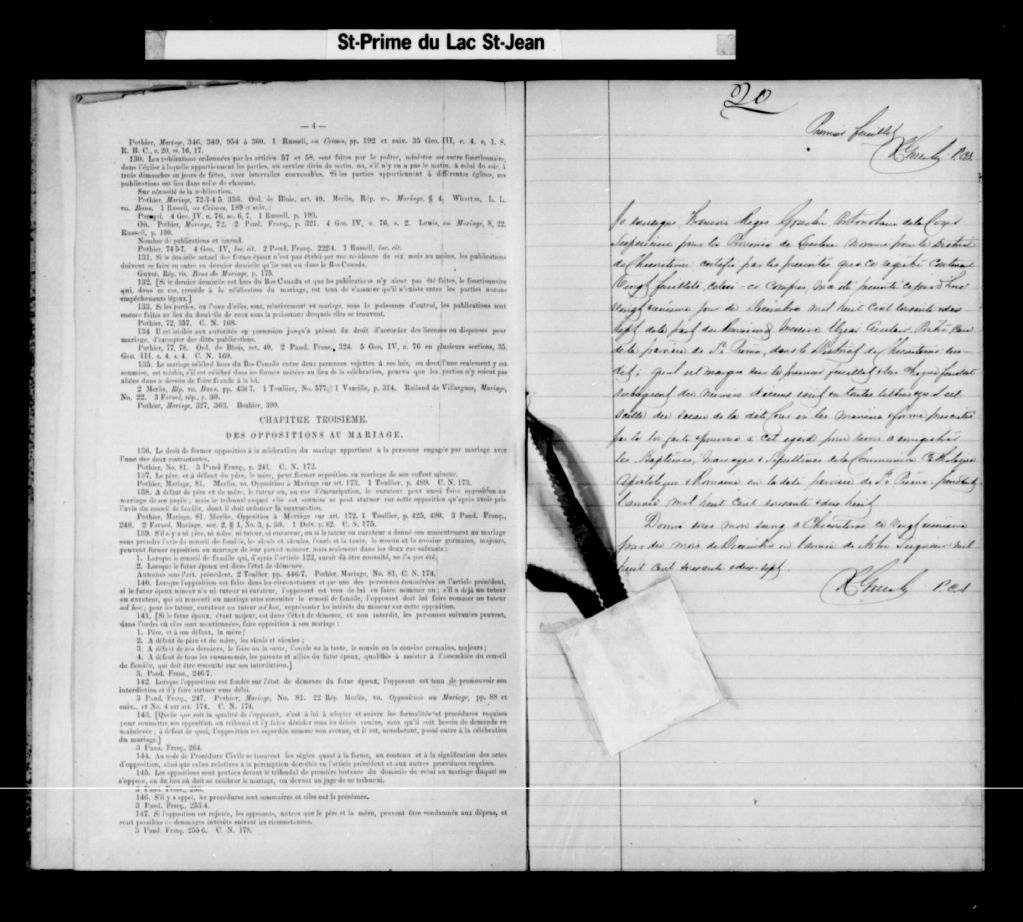 St-Prime du Lac St-Jean
— 4 —
Pothier, Mariage, 346, 349, 954 à 360. 1 Russell, on Crimes, pp. 192 et suiv. 35 Geo. III, c. 4, s. 1, 8.
R. B. C., c. 20, ss. 16, 17.
130. Les publications ordonnées par les articles 57 et 58, sont faites par le prêtre, ministre ou autre fonctionnaire,
dans l'église à laquelle appartiennent les parties, au service divin du matin, ou, s'il n'y en a pas le matin, à celui du soir, à
trois dimanches ou jours de fêtes, avec intervalles convenables. Si les parties appartiennent à différentes églises, ces
publications ont lieu dans celle de chacune.
Sur nécessité de la publication.
Pothier, Mariage, 72-3-4-5, 356. Ord. de Blois, art. 40. Merlin, Rép. vo. Mariage, § 4. Wharton, L. L.
vo. Bans, 1 Russell, on Crimes, 189 et suiv.
4 Geo. IV, c. 76, ss. 6, 7. 1 Russell, p. 193.
Où. Pothier, Mariage, 72. 2 Pand. Franç., p. 321. 4 Geo. IV, c. 76, s. 2. Lewis, on Mariage, 8, 22.
Russell, p. 190.
Nombre de publications et quand.
Pothier, 74-5-7. 4 Geo. IV, loc. cit. 2 Pand. Franç. 222-4. 1 Russell, loc. cit.
131. Si le domicile actuel des futurs époux n'est pas établi par une résidence de six mois au moins, les publications
doivent se faire en outre au dernier domicile qu'ils ont eu dans le Bas-Canada.
Guyot, Rép. vo. Bans de Mariage, p. 175.
132. [Si le dernier domicile est hors du Bas-Canada et que les publications n'y aient pas été faites, le fonctionnaire
qui, dans ce cas, procède à la célébration du mariage, est tenu de s'assurer qu'il n'existe entre les parties aucuns
empêchements légaux.]
133. Si les parties, ou l'une d'elles, sont, relativement au mariage, sous la puissance d'autrui, les publications sont
encore faites au lieu du domicile de ceux sous la puissance desquels elles se trouvent.
Pothier, 72, 357. C. N. 168.
134 Il est loisible aux autorités en possession jusqu'à présent du droit d'accorder des licences ou dispenses pour
mariage, d'exempter des dites publications.
Pothier, 77, 78. Ord. de Blois, art. 40. 2 Pand. Franç., 324. 5 Geo. IV, c. 76 en plusieurs sections, 35.
Geo. III, c. 4, s. 4. C. N. 169.
135. Le mariage célébré hors du Bas-Canada entre deux personnes sujettes à ses lois, ou dont l'une seulement y est
soumise, est valable, s'il est célébré dans les formes usitées au lieu de la célébration, pourvu que les parties n'y soient pas
allées dans le dessein de faire fraude à la loi.
2 Merlin, Rép. vo. Bans, pp. 456-7. 1 Toullier, No. 577. 1 Vazeille, p. 314. Rolland de Villargues, Mariage,
No. 22. 3 Favard, rép., p. 30.
Pothier, Mariage, 327, 363. Bouhier, 390.
CHAPITRE TROISIÈME.
DES OPPOSITIONS AU MARIAGE.
136. Le droit de former opposition à la célébration du mariage appartient à la personne engagée par mariage avec
l'une des deux contractantes.
Pothier, No. 81. 3 Pand Franç., p. 241. C. N. 172.
137. Le père et à défaut du père, la mère, peut former opposition au mariage de son enfant mineur.
Pothier, Mariage, 81. Merlin, vo. Opposition à Mariage sur art. 173. 1 Toullier, p. 489. C. N. 173.
138. A défaut de père et de mère, le tuteur ou, au cas d'émancipation, le curateur peut aussi faire opposition au
mariage de son pupile; mais le tribunal auquel elle est soumise ne peut statuer sur cette opposition qu'après avoir pris
l'avis du conseil de famille, dont il doit ordonner la convocation.
Pothier, Mariage, 81. Merlin, Opposition à Mariage sur art. 172. 1 Toullier, p. 425, 490. 3 Pand. Franç.,
248. 2 Favard, Mariage, sec. 2, § 1, No. 3, p. 59. 1 Delv. p. 62. C. N. 175.
139. S'il n'y a ni père, ni mère, ni tuteur, ni curateur, ou si le tuteur ou curateur a donné son consentement au mariage
sans prendre l'avis du conseil de famille, les aïeuls et aïeules, l'oncle et la tante, le cousin et la cousine germains, majeurs,
peuvent former opposition au mariage de leur parent mineur, mais seulement dans les deux cas suivants:
1. Lorsque le conseil de famille qui, d'après l'article 122, aurait dû être consulté, ne l'a pas été.
2. Lorsque le futur époux est dans l'état de démence.
Autorités sous l'art. précédent. 2 Toullier, pp. 446-7. Pothier, Mariage, No. 81, C. N. 174.
140. Lorsque l'opposition est faite dans les circonstances et par une des personnes énumérées en l'article précédent,
si le futur époux mineur n'a ni tuteur ni curateur, l'opposant est tenu de lui en faire nommer un; s'il a déjà un tuteur
ou curateur, qui ait consenti au mariage sans consulter le conseil de famille, l'opposant doit lui faire nommer un tuteur
ad hoc; pour les tuteur, curateur ou tuteur ad hoc, représenter les intérêts du mineur sur cette opposition.
141. [Si le futur époux, étant majeur, est dans l'état de démence, et non interdit, les personnes suivantes peuvent,
dans l'ordre où elles sont mentionnées, faire opposition à son mariage:
1. Père, et à son défaut, la mère;
2. A défaut de père et de mère, les aïeuls et aïeules;
3. A défaut de ces derniers, le frère ou la sœur, l'oncle ou la tante, le cousin ou la cousine germains, majeurs;
4. A défaut de tous les susnommés, les parents et alliés du futur époux, qualifiés à assister à l'assemblée du conseil
de famille, qui doit être consulté sur son interdiction.]
3. Pand. Franç., 246-7.
142. Lorsque l'opposition est fondée sur l'état de démence du futur époux, l'opposant est tenu de promouvoir son
interdiction et d'y faire statuer sans délai.
3 Pand. Franç., 247. Pothier, Mariage, No. 81. 22 Rép. Merlin, vo. Opposition au Mariage, pp. 88 et
suiv., et No. 4 sur art. 174. C. N. 174.
143. [Quelle que soit la qualité de l'opposant, c'est à lui à adopter et suivre les formalités et procédures requises
pour soumettre son opposition au tribunal et l'y faire décider sous les délais voulus, sans qu'il soit besoin de demande en
mainlevée; à défaut de quoi, l'opposition est regardée comme non avenue, et il est, nonobstant, passé outre à la célébration
du mariage.]
3 Pand. Franç., 264.
144. Au code de Procédure Civile se trouvent les règles quant à la forme, au contenu et à la signification des actes
d'opposition, ainsi que celles relatives à la péremption décrétée en l'article précédent et aux autres procédures requises.
145. Les oppositions sont portées devant le tribunal de première instance du domicile de celui au mariage duquel on
s'oppose, ou du lieu où doit se célébrer le mariage, ou devant un juge de ce tribunal.
3 Pand. Franç., 253.
146. S'il y a appel, les procédures sont sommaires et elles ont la préséance.
3 Pand. Franç., 253-4.
147. Si l'opposition est rejetée, les opposants, autres que le père et la mère, peuvent être condamnés aux dépens, et
sont passibles de dommages-intérêts suivant les circonstances.
3 Pand. Franç. 255-6. C. N. 179.
20
Premier feuillet
Je soussigné François Régis Gosselin Protonotaire de la Cour
Supérieure pour la Province de Québec nommé pour le District
de Chicoutimi certifie par les présentes que ce registre contenant
Vingt feuillets celui-ci compris m'a été présenté ce jourd'hui
vingtunième jour de Décembre mil huit cent soixante et dix
sept de la part du Révérend Messire Elzéar Auclair Prêtre Curé
de la paroisse de St Prime, dans le District de Chicoutimi
qu'il est marqué sur le premier feuillet et sur chaque feuillet
subséquent du numéro d'icelui écrit en toutes lettres et est
scellé du sceau de la dite Cour en la manière et forme prescrite
par la loi faite et pourvue à cet égard pour servir à enregistrer
les Baptêmes, Mariages & Sépultures de la Communion Catholique
Apostolique & Romaine en la dite paroisse de St Prime, pendant
l'année mil huit cent soixante et dix huit
Donné sous mon seing à Chicoutimi ce vingtunième
jour du mois de Décembre en l'année de Notre Seigneur mil
huit cent soixante et dix-sept.